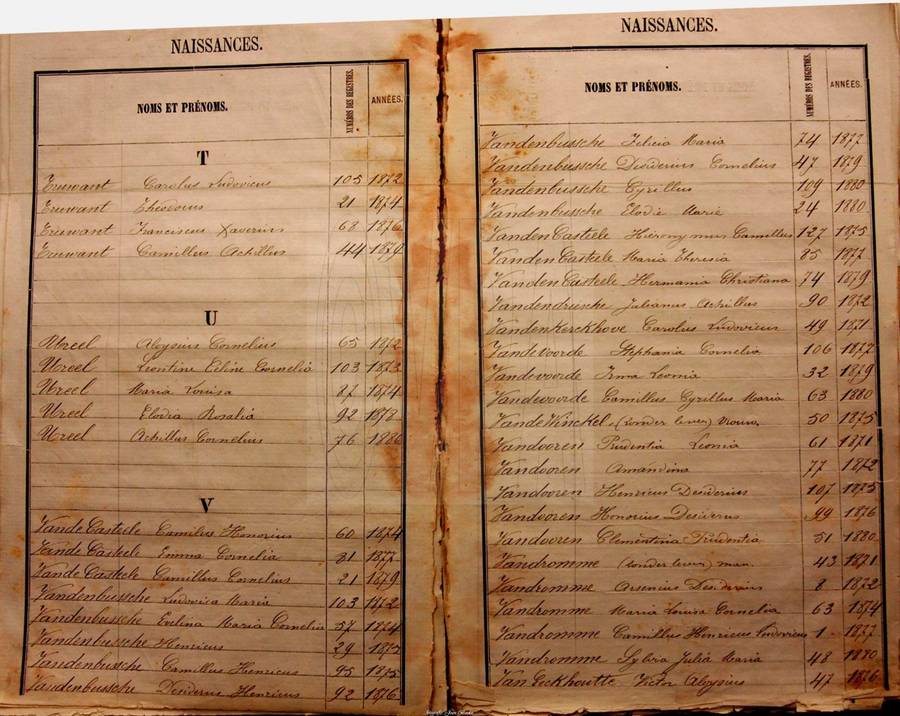 NAISSANCES.
NOMS ET PRÉNOMS. NUMÉROS DES REGISTRES. ANNÉES.
T
Truwant Carolus Ludovicus 105 1872
Truwant Theodorus 21 1874
Truwant Franciscus Xaverius 68 1876
Truwant Camillus Achillus 44 1879
U
Ureel Aloysius Cornelius 65 1872
Ureel Leontine Céline Cornelia 103 1873
Ureel Maria Louisa 87 1874
Ureel Elodia Rosalia 92 1878
Ureel Achillus Cornelius 76 1880
V
Vande Casteele Camilus Honorius 60 1874
Vande Casteele Emma Cornelia 31 1877
Vande Casteele Camillus Cornelius 21 1879
Vandenbussche Ludovica Maria 103 1872
Vandenbussche Evelina Maria Cornelia 57 1874
Vandenbussche Henricus 29
Vandenbussche Camillus Henricus 95 1875
Vandenbussche Desiderius Henricus 92 1876
NAISSANCES.
NOMS ET PRÉNOMS. NUMÉROS DES REGISTRES. ANNÉES.
Vandenbussche Felicia Maria 74 1877
Vandenbussche Desiderius Cornelius 47 1879
Vandenbussche Cyrillus 109 1880
Vandenbussche Elodie Marie 24 1880
Vanden Casteele Hieronymus Camillus 127 1875
Vanden Casteele Maria Theresia 85 1877
Vanden Casteele Hermania Christiana 74 1879
Vandendriesche Julianus Achillus 90 1872
Vanden Kerckhove Carolus Ludovicus 49 1871
Vandevoorde Stephania Cornelia 106 1877
Vandevoorde Irma Leonia 32 1879
Vandevoorde Camillus Cyrillus Maria 63 1880
Vande Winckel (zonder leven) vrouw. 50 1875
Vandooren Prudentia Leonia 61 1871
Vandooren Amandina 77 1872
Vandooren Henricus Desiderius 107 1875
Vandooren Honorius Desiderius 99 1876
Vandooren Clementina Prudentia 51 1880
Vandromme (zonder leven) man. 43 1871
Vandromme Arsenius Desiderius 8 1872
Vandromme Maria Louisa Cornelia 63 1874
Vandromme Camillus Henricus Ludovicus 1 1877
Vandromme Sylvia Julia Maria 48 1880
Van Eeckhoutte Victor Aloysius 47 1876